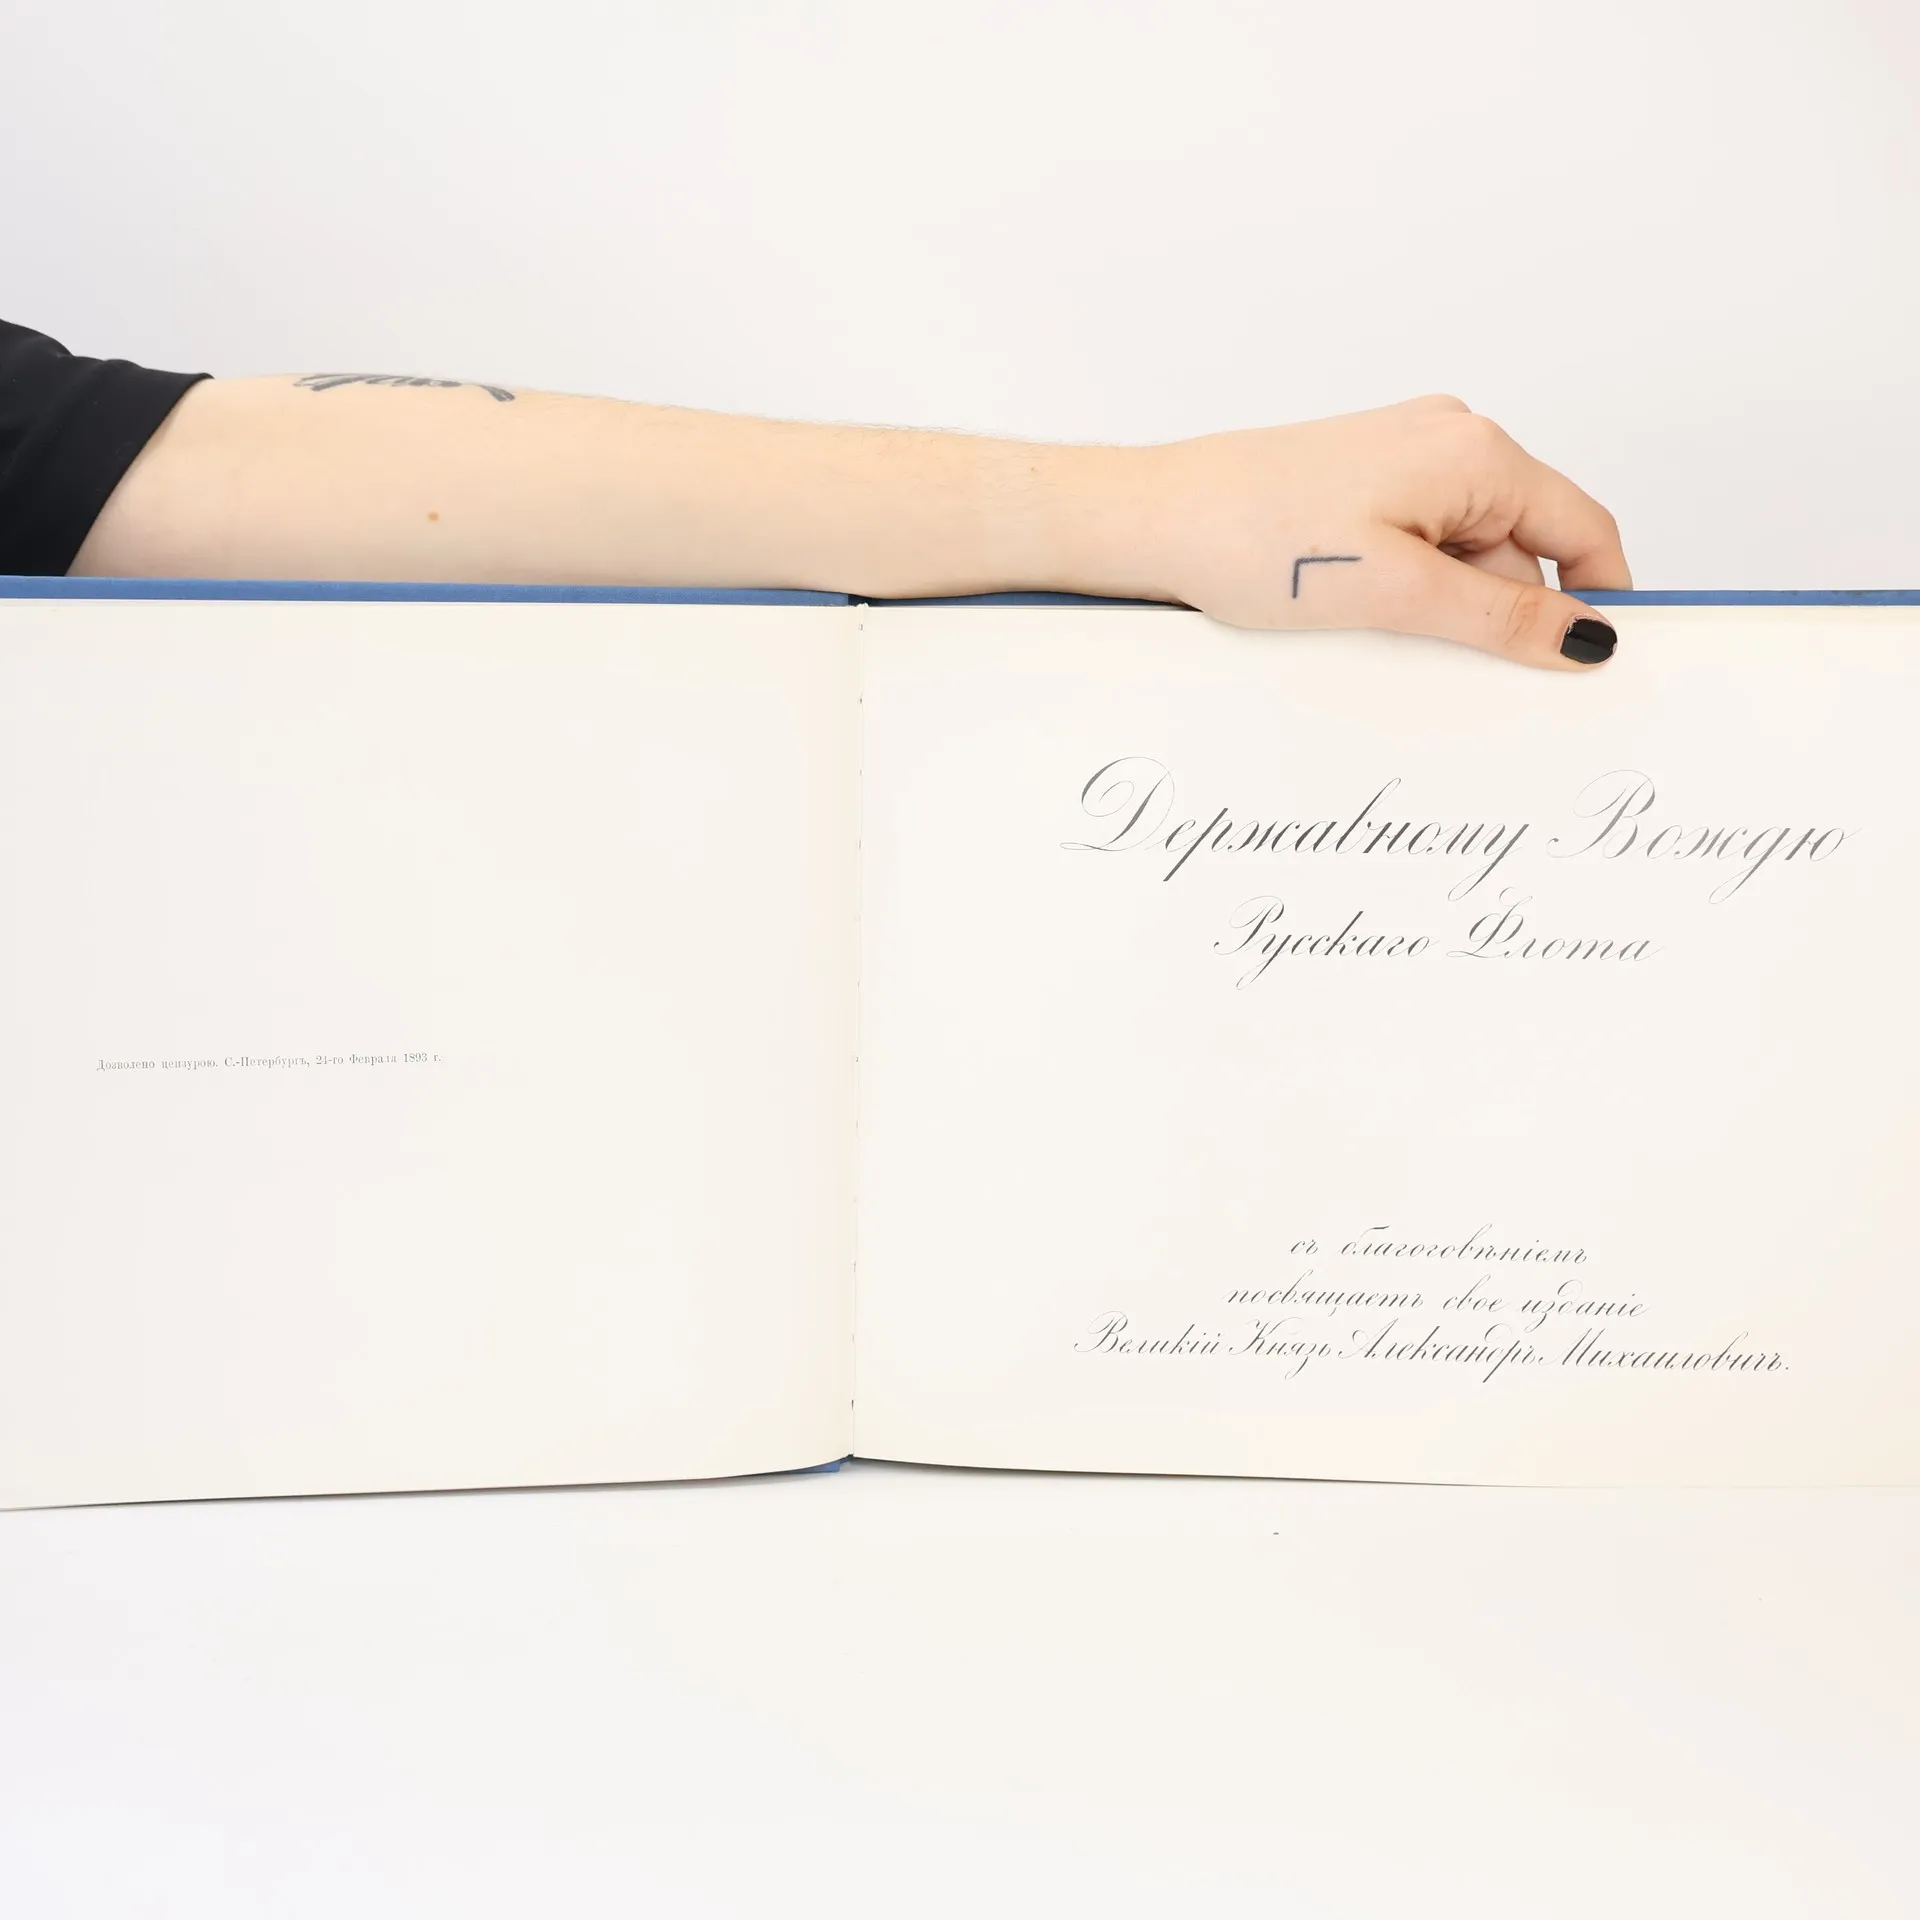 Дозволено цензурою. С.-Петербургъ, 24-го Февраля 1893 г.
Державному Вождю
Русскаго Флота
съ благоговѣніемъ
посвящаетъ свое изданіе
Великій Князь Александръ Михаиловичъ.